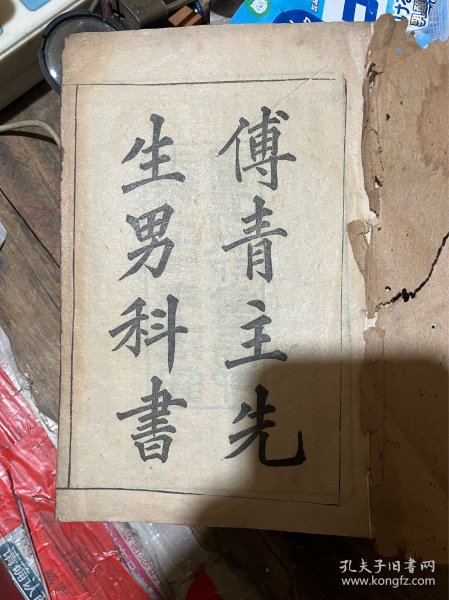 傅青主先
生男科書
请确认
孔夫子旧书网
www.kongfz.com